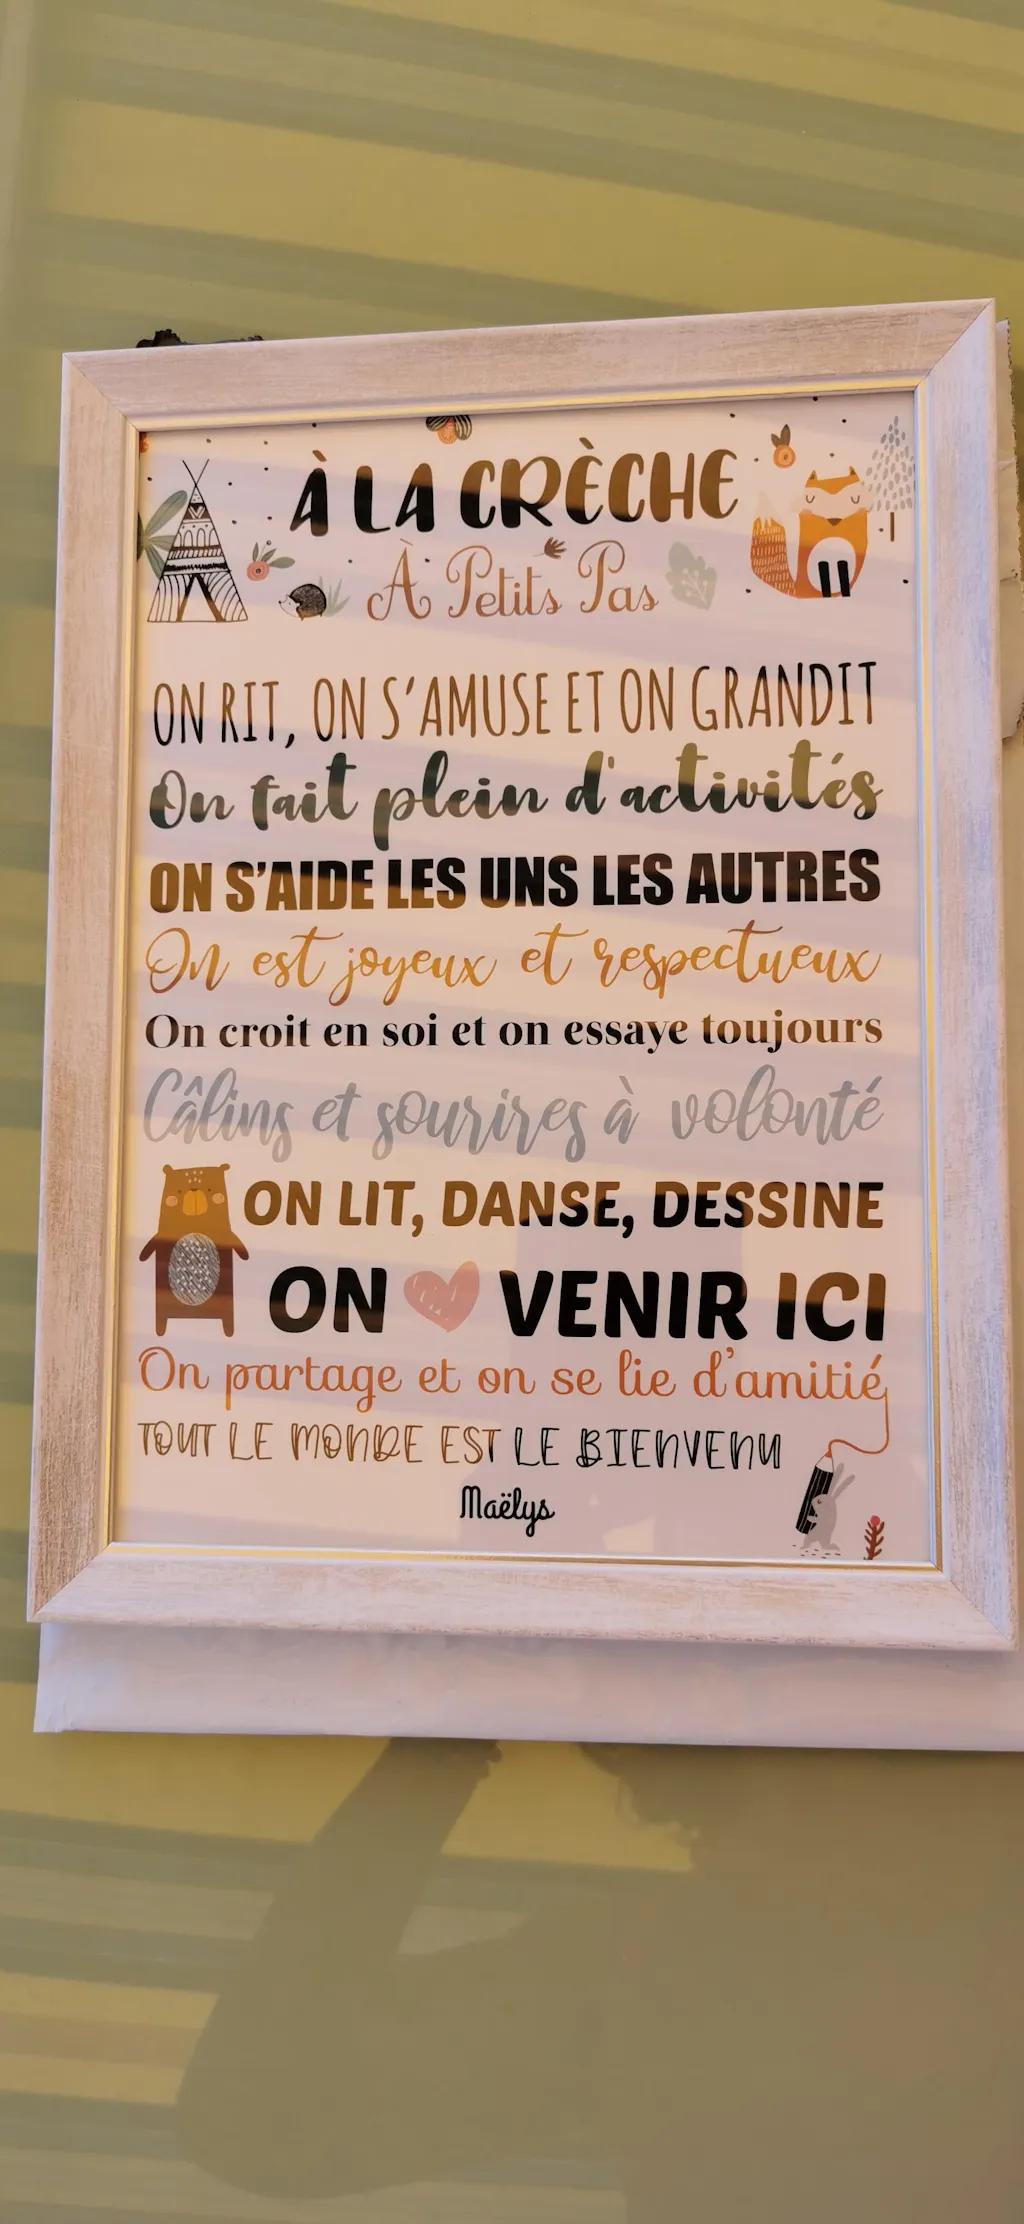 À LA CRÈCHE
À Petits Pas
ON RIT, ON S'AMUSE ET ON GRANDIT
On fait plein d'activités
ON S'AIDE LES UNS LES AUTRES
On est joyeux et respectueux
On croit en soi et on essaye toujours
Câlins et sourires à volonté
ON LIT, DANSE, DESSINE
ON VENIR ICI
On partage et on se lie d'amitié
TOUT LE MONDE EST LE BIENVENU
Maëlys